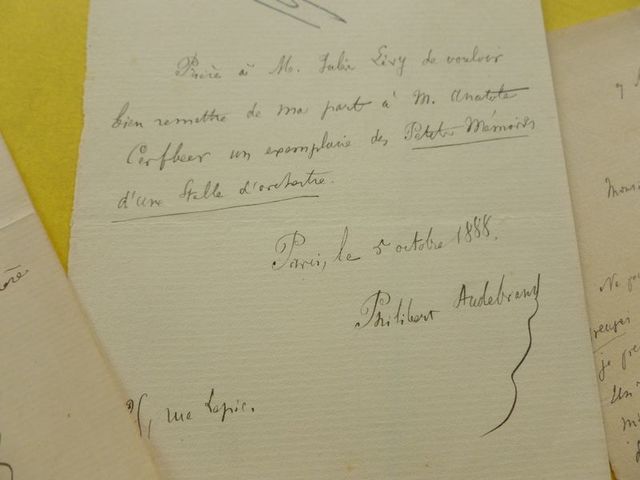 Prière à M. Jules Lévy de vouloir
bien remettre de ma part à M. Anatole
Cerfbeer un exemplaire des Petits Mémoires
d'une Stalle d'orchestre.
Paris, le 5 octobre 1888.
Philibert Audebrand
rue Lepic.
je